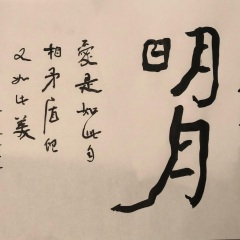 明月
愛是如此自
相矛盾的
又如此美